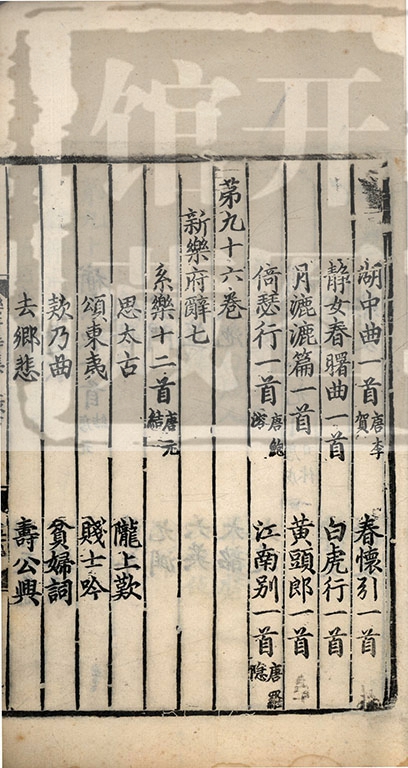 湖中曲一首唐李賀 春懷引一首
静女春曙曲一首 白虎行一首
月漉漉篇一首 黃頭郎一首
倚瑟行一首唐鮑溶 江南别一首唐羅隱
第九十六卷
新樂府辭七
系樂十二首唐元結
思太古 隴上歎
頌東夷 賤士吟
欸乃曲 貧婦詞
去鄉悲 壽公興